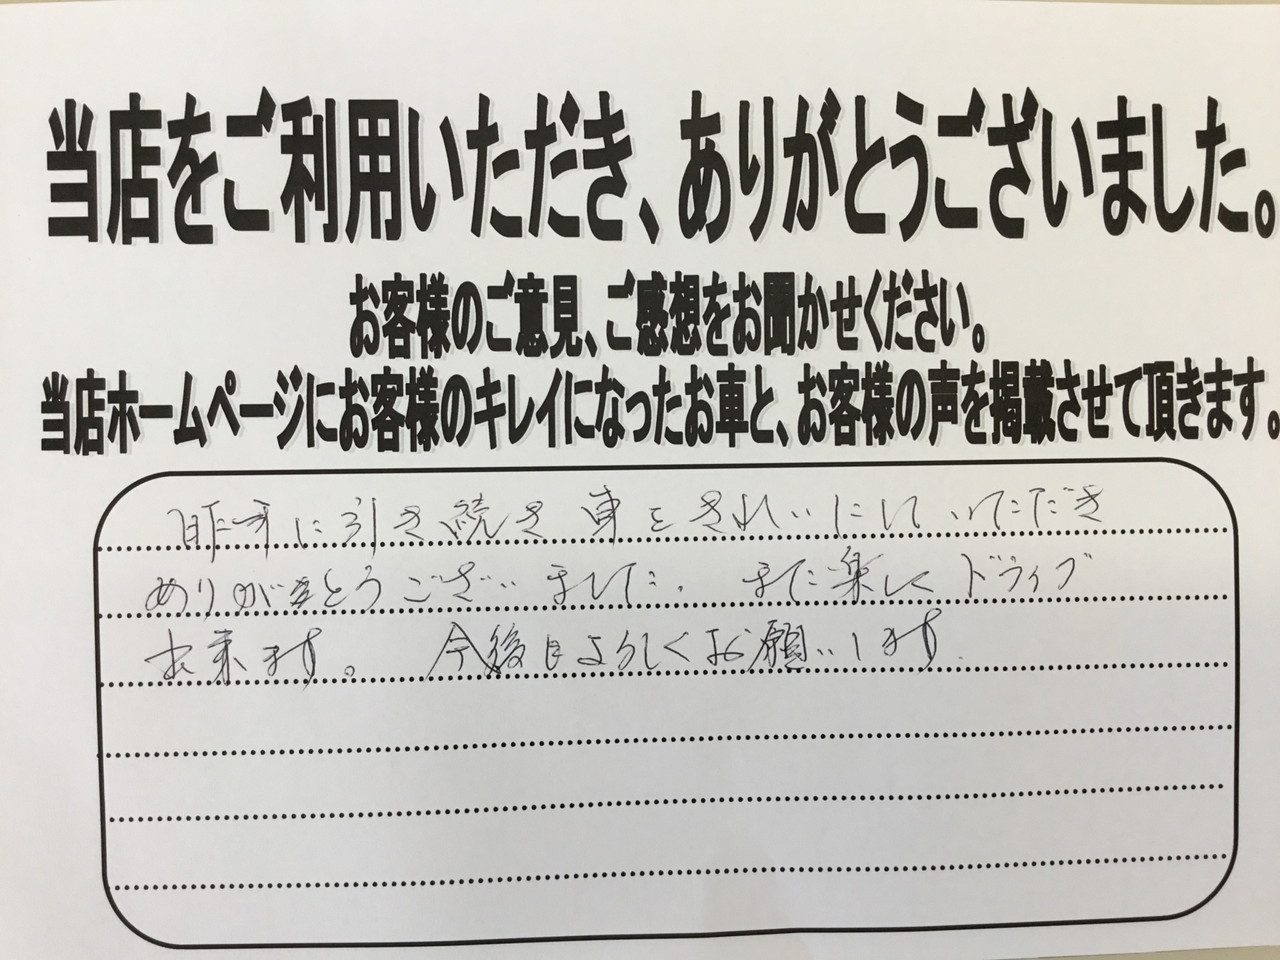 当店をご利用いただき、ありがとうございました。
お客様のご意見、ご感想をお聞かせください。
当店ホームページにお客様のキレイになったお車と、お客様の声を掲載させて頂きます。
昨年に引き続き車をきれいにしていただき
ありがとうございました。また楽しくドライブ
出来ます。今後もよろしくお願いします.